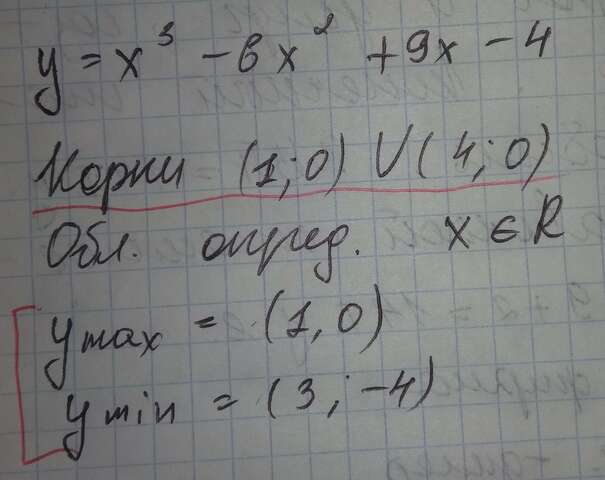 y = x³ - 6x² + 9x - 4
Корни (1;0) V (4;0)
Обл. опред. x ∈ R
y max = (1, 0)
y min = (3; -4)